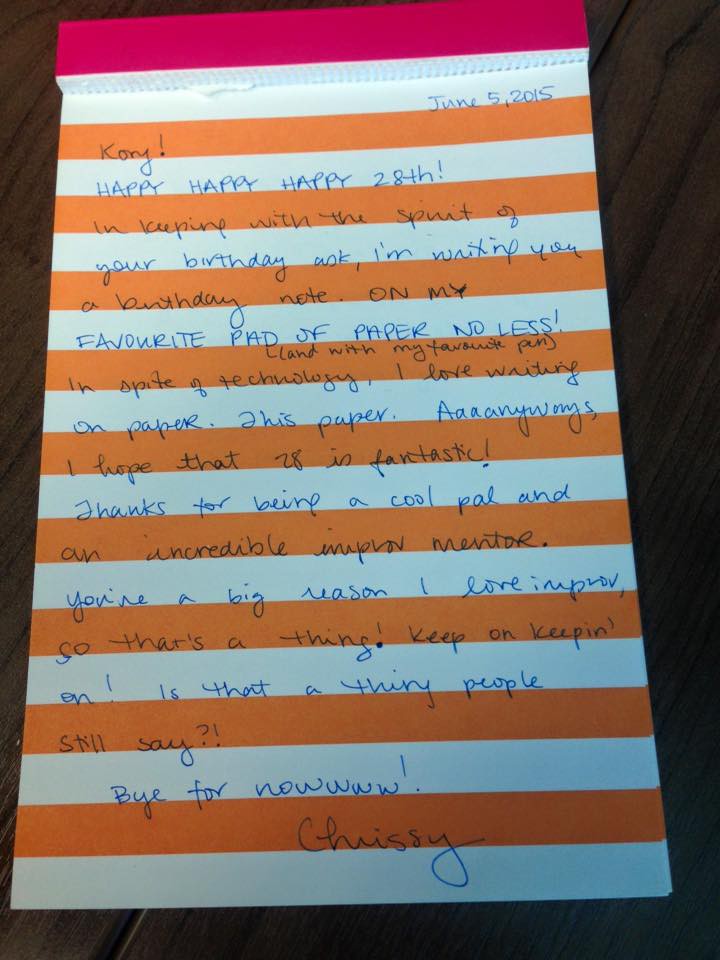 June 5, 2015
Kory!
HAPPY HAPPY HAPPY 28th!
In keeping with the spirit of
your birthday ask, i'm writing you
a birthday note. ON MY
FAVOURITE PAD OF PAPER NO LESS!
(and with my favourite pen)
In spite of technology, I love writing
on paper. This paper. Aaaanyways,
I hope that 28 is fantastic!
Thanks for being a cool pal and
an incredible improv mentor.
You're a big reason I love improv,
so that's a thing! Keep on keepin'
on! Is that a thing people
still say?!
Bye for nowwww!
Chrissy